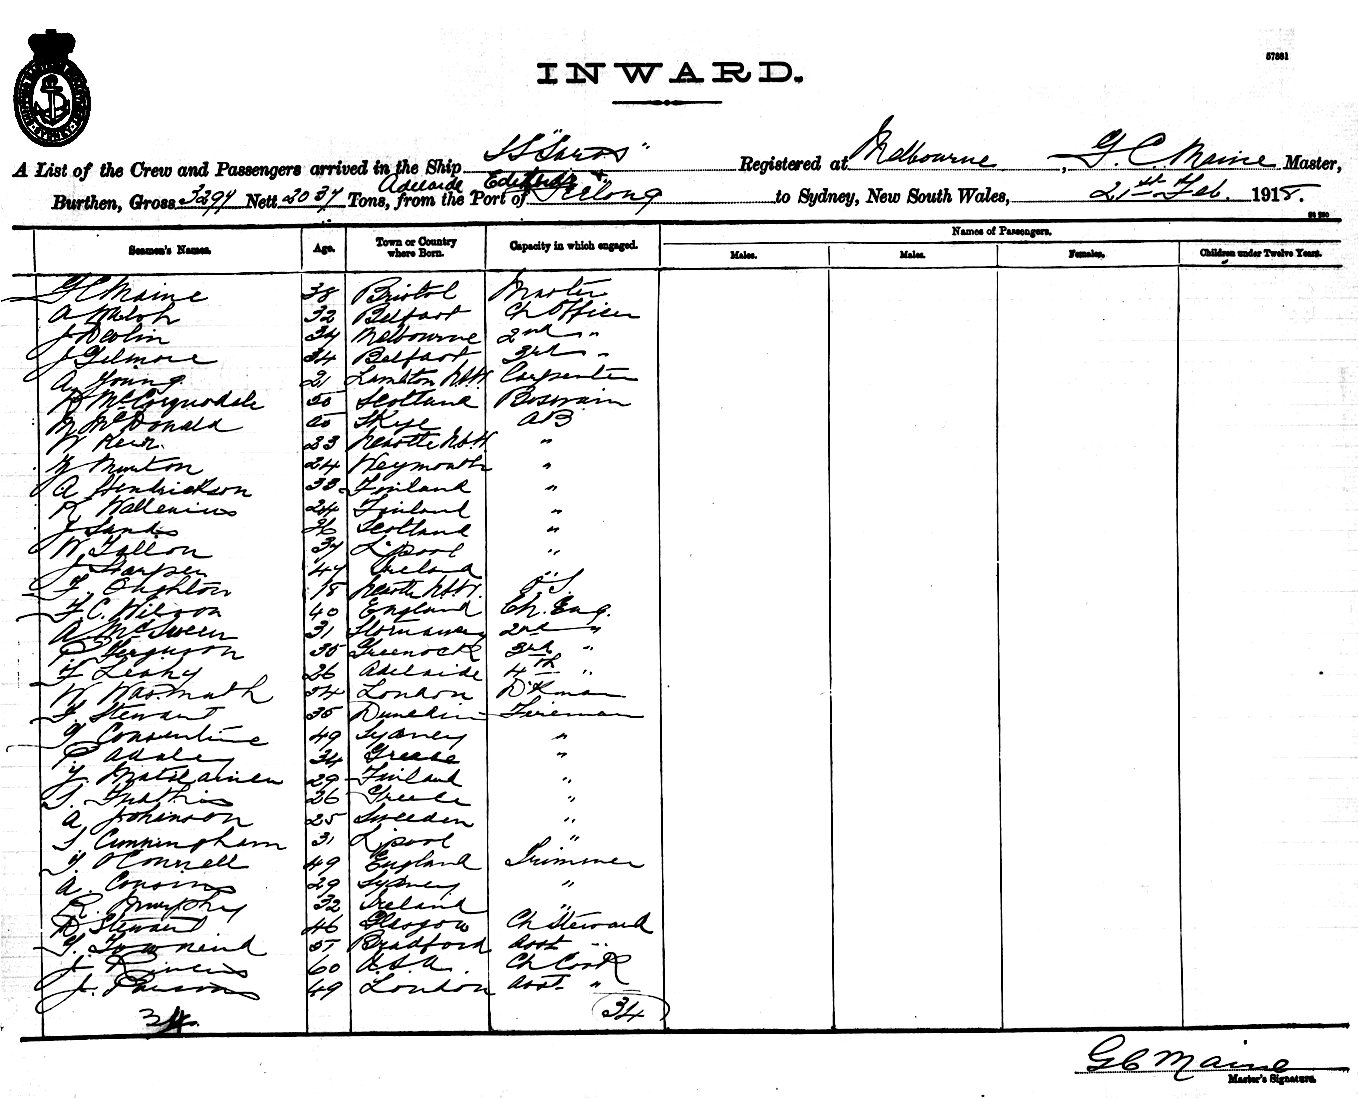 57881
INWARD.
A List of the Crew and Passengers arrived in the Ship SS "Saros" Registered at Melbourne, G. C. Maine Master,
Adelaide
Burthen, Gross 3294 Nett 2037 Tons, from the Port of Geelong to Sydney, New South Wales, 21st Feb. 1918.
Seamen's Names. Age. Town or Country where Born. Capacity in which engaged. Names of Passengers.
Males. Males. Females. Children under Twelve Years.
G C Maine 38 Bristol Master
A Welsh 32 Belfast Ch Officer
J Devlin 34 Melbourne 2nd "
J Gilmore 34 Belfast 3rd "
A Young 21 Lambton NSW Carpenter
McCorquodale 50 Scotland Boswain
M McDonald Skye AB
W Keir 23 Newctle NSW "
Munton 24 Weymouth "
A Hendrickson 33 Finland "
R Wallenius 24 Finland "
J Sands 36 Scotland "
W Fallon 37 L'pool "
J Harper 47 Ireland "
F. Oughton 18 Newctle NSW. O.S.
F. C. Wilson 40 England Ch. Eng.
A McSween 31 Stornaway 2nd "
Ferguson 35 Greenock 3rd "
F Leahy 26 Adelaide 4th "
W Wasmuth 54 London D'kman
Stewart 35 Dunedin Fireman
G Consentine 49 Sydney "
34 Greece "
29 Finland "
S. Gnathis 26 Greece "
A Johanson 25 Sweeden "
S Cunningham 31 L'pool "
O'Connell 49 England Trimmer
A. Cousins 29 Sydney "
R. Murphy 32 Ireland "
D Stewart 46 Glasgow Ch Steward
G. Townend 51 Bradford Asst "
J. Rivers 60 U.S.A. Ch Cook
J. Parsons 49 London Asst. "
34
G C Maine
Master's Signature.